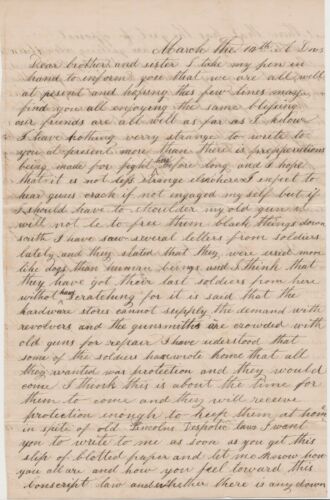 March the 14th A D 1863
Dear brother and sister I take my pen in
hand to inform you that we are all well
at present and hoping thes few lines may
find you all enjoying the same blessing
our friends are all well as far as I know
I have nothing verry strange to write to
you at present more than there is preparations
being made for fight here before long and I hope
that it is not less strange elsewhere I expect to
hear guns crack if not ingaged my self but if
I should have to shoulder my old gun it
will not be to free them black things down
south I have saw several letters from soldiers
lately and they stated that they were used more
like dogs than human beings and I think that
they have got their last soldiers from here
without hard scratching for it is said that the
hardware stores cannot supply the demand with
revolvers and the gunsmiths are crowded with
old guns for repair I have uderstood that
some of the soldiers has wrote home that all
they wanted was protection and they would
come I think this is about the time for
them to come and they will receive
protection enough to keep them at home
in spite of old Lincolns Despotic laws I want
you to write to me as soon as you get this
slip of blotted paper and let me know how
you all are and how you feel toward this
conscript law and whether there is any down